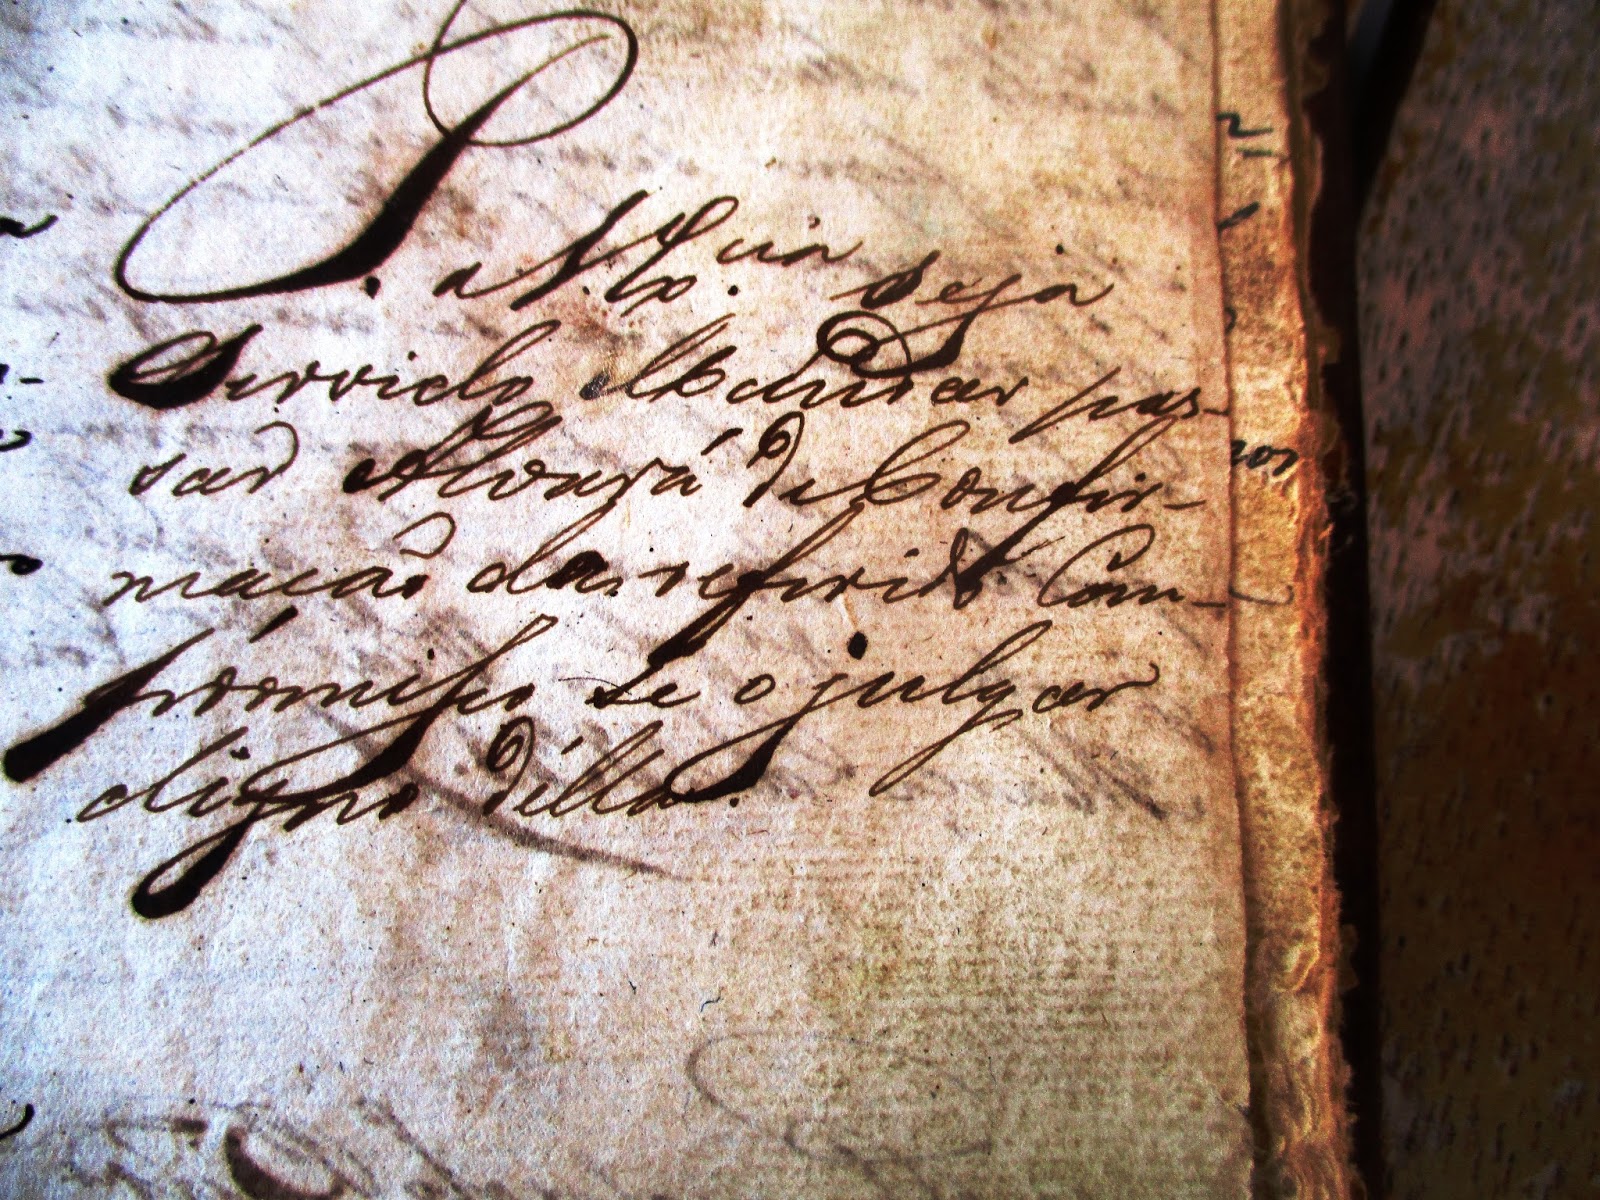 P. a V. Ex.cia seja
Servido Mandar pas-
sar Alvará de Confir-
mação da referido Com-
promisso se o julgar
digno d'illa.